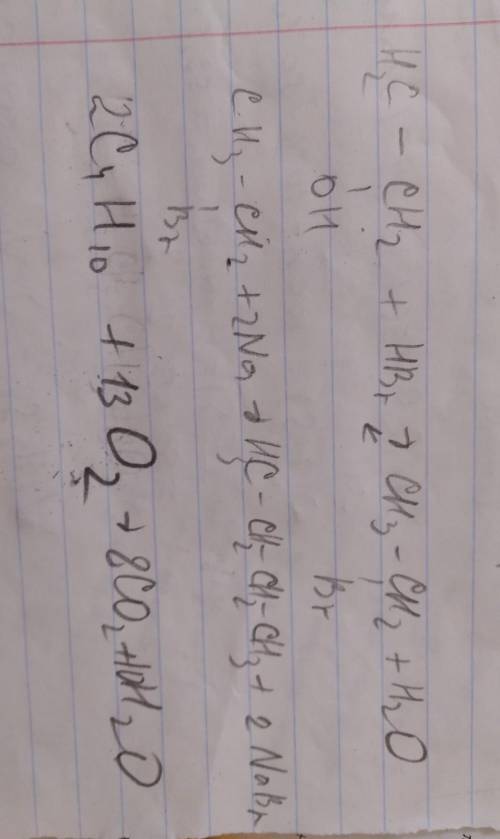 H₂C - CH₂ + HBr → CH₃ - CH₂ + H₂O
OH Br
CH₃ - CH₂ + 2Na → H₃C - CH₂ - CH₂ - CH₃ + 2NaBr
Br
2C₄H₁₀ + 13O₂ → 8CO₂ + 10H₂O